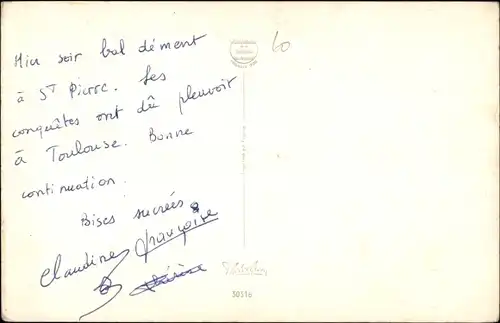 Hier soir bal dément
à St Pierre. Les
conquêtes ont dû pleuvoir
à Toulouse. Bonne
continuation.
Bises sucrées
Claudine Françoise
60
50316